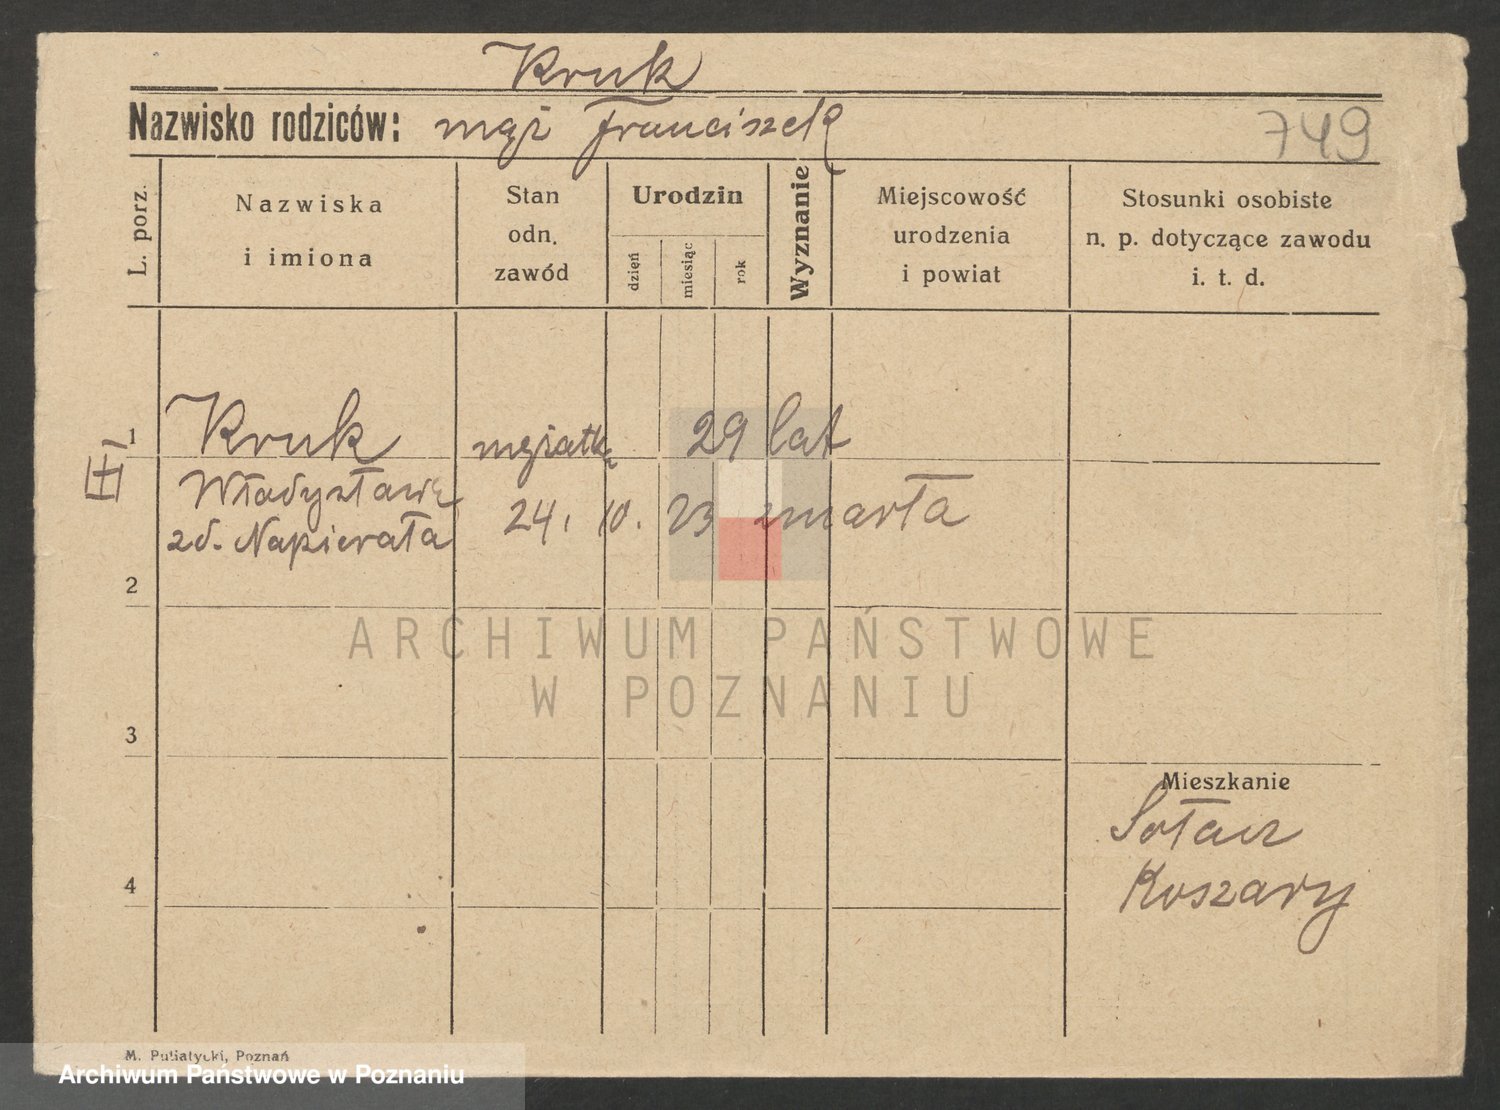 Kruk
Nazwisko rodziców: mąż Franciszek
749
L. porz.
Nazwiska
i imiona
Stan
odn.
zawód
Urodzin
dzień
miesiąc
rok
Wyznanie
Miejscowość
urodzenia
i powiat
Stosunki osobiste
n. p. dotyczące zawodu
i. t. d.
1 Kruk mężatka 29 lat
Władysława 24. 10. 23 zmarła
zd. Napierała
2
ARCHIWUM PAŃSTWOWE
W POZNANIU
3
Mieszkanie
Sołacz
4
Koszary
M. Putiatycki, Poznań
Archiwum Państwowe w Poznaniu